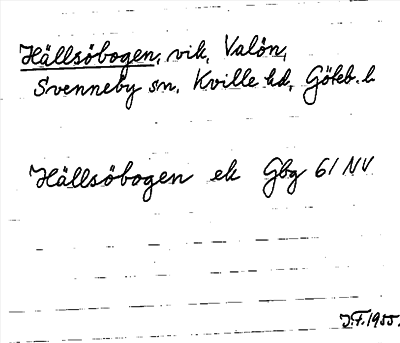 Hällsöbogen, vik, Valön,
Svenneby sn, Kville hd, Göteb. l
Hällsöbogen ek Gbg 61 NV
J.F. 1955.